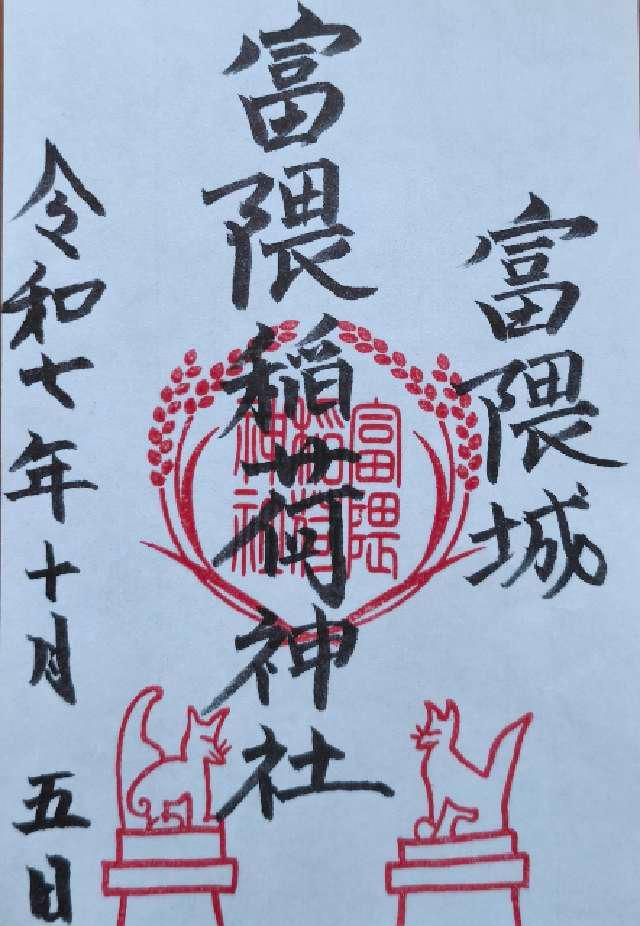 富隈城
富隈稲荷神社
富隈
稲荷
神社
令和七年十月五日